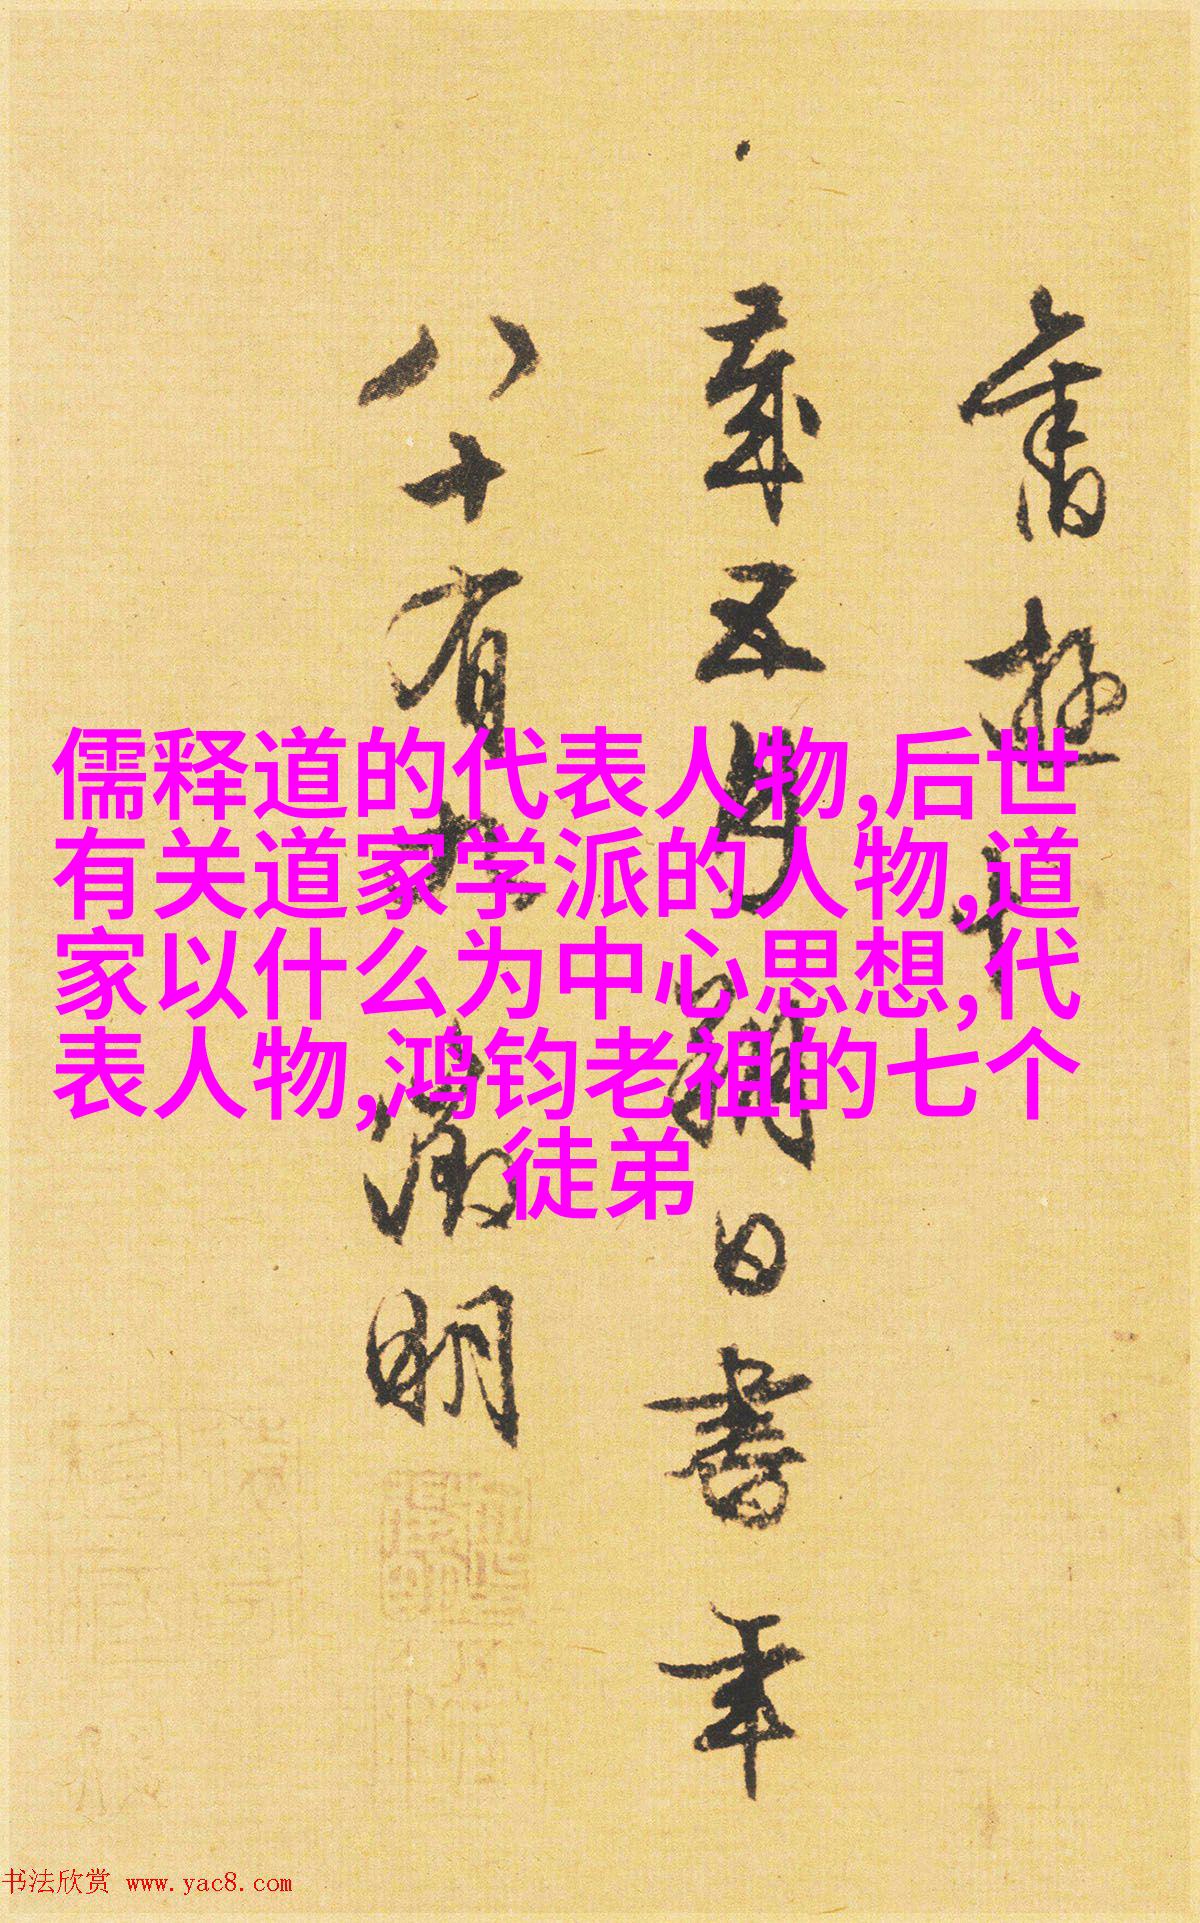 儒释道的代表人物,后世
有关道家学派的人物,道
家以什么为中心思想,代
表人物,鸿钧老祖的七个
徒弟
歲五月朔日書年
八十有九 徵明
书法欣赏 www.yac8.com